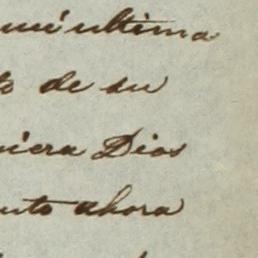 mi ultima
to de su
niera Dios
ento ahora